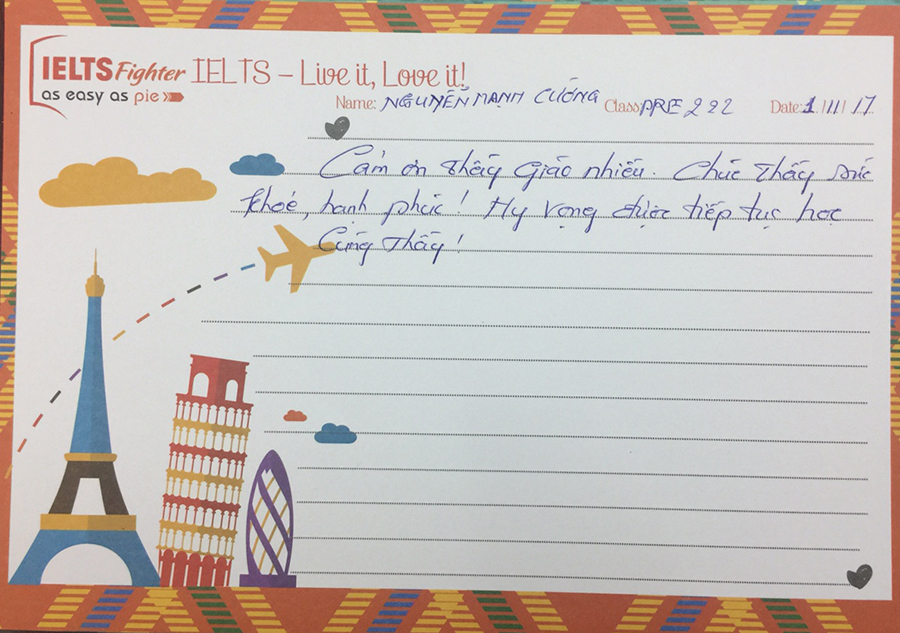 IELTS Fighter IELTS – Live it, Love it!
as easy as pie
Name: NGUYỄN MẠNH CƯỜNG Class: PRE 222 Date: 1/11/17
Cảm ơn thầy giáo nhiều. Chúc thầy sức
khoẻ, hạnh phúc! Hy vọng được tiếp tục học
cùng thầy!